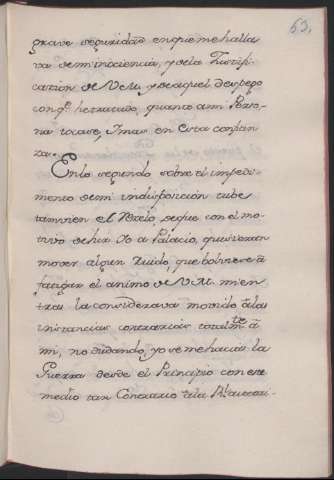 53,
grave seguridad enqueme halla
va demi inociencia, y dela Justifi
cacion de V.M. y deaquel despego
con qe. hetratado, quanto ami Perso
na tocase, Imas en esta confian
za.
En lo segundo sobre el impedi
mento demi indisposicion tube
tamvien el Recelo, deque con el mo
tivo dehir Yo a Palacio, quisieran
mover algun Ruido, que bolviere â
fatigar el animo de V.M. mien
tras la considerava movido â las
instancias contrarias totalmte. â
mi, no dudando, yo se me hacia la
Guerra desde el Principio con este
medio tan Contrario â la Rl. autori-